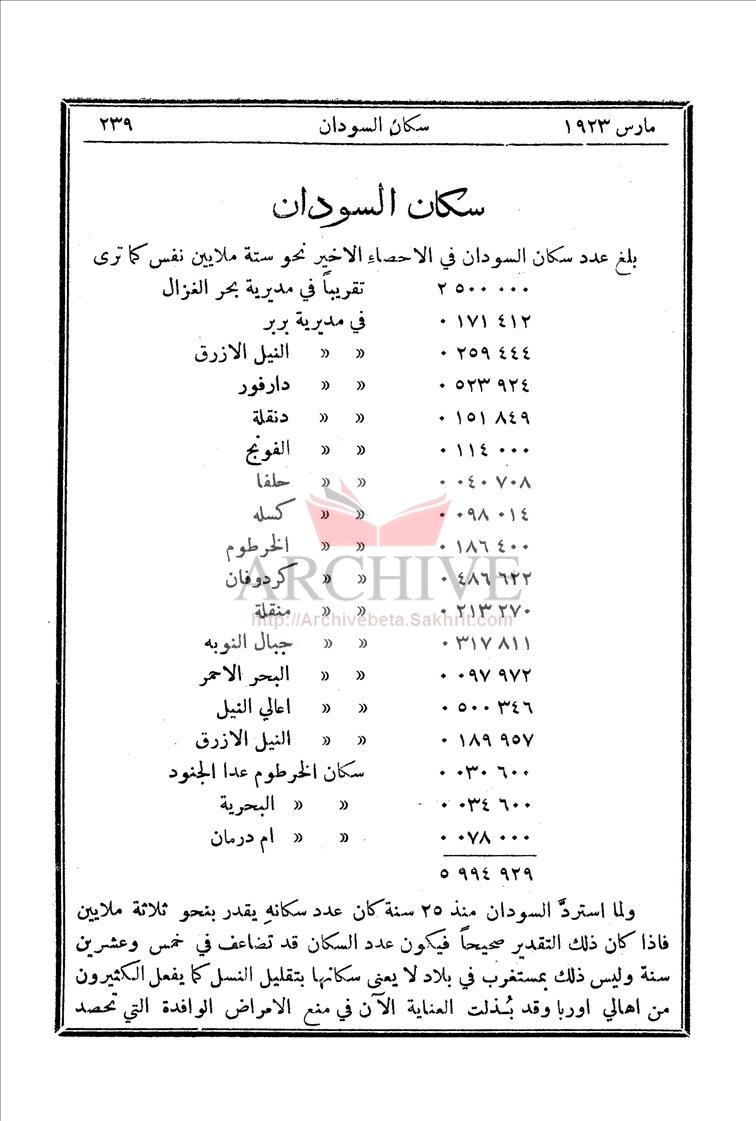 مارس ١٩٢٣ سكان السودان ٢٣٩
سكان السودان
بلغ عدد سكان السودان في الاحصاءِ الاخير نحو ستة ملايين نفس كما ترى
٢ ٥٠٠ ٠٠٠ تقريباً في مديرية بحر الغزال
٠ ١٧١ ٤١٢ في مديرية بربر
٠ ٢٥٩ ٤٤٤ » » النيل الازرق
٠ ٥٢٣ ٩٢٤ » » دارفور
٠ ١٥١ ٨٤٩ » » دنقلة
٠ ١١٤ ٠٠٠ » » الفونج
٠ ٠٤٠ ٧٠٨ » » حلفا
٠ ٠٩٨ ٠١٤ » » كسله
٠ ١٨٦ ٤٠٠ » » الخرطوم
٠ ٤٨٦ ٦٢٢ » » كردوفان
٠ ٢١٣ ٢٧٠ » » منقلة
٠ ٣١٧ ٨١١ » » جبال النوبه
٠ ٠٩٧ ٩٧٢ » » البحر الاحمر
٠ ٥٠٠ ٣٤٦ » » اعالي النيل
٠ ١٨٩ ٩٥٧ » » النيل الازرق
٠ ٠٣٠ ٦٠٠ سكان الخرطوم عدا الجنود
٠ ٠٣٤ ٦٠٠ » » البحرية
٠ ٠٧٨ ٠٠٠ » » ام درمان
٥ ٩٩٤ ٩٢٩
ولما استردَّ السودان منذ ٢٥ سنة كان عدد سكانهِ يقدر بنحو ثلاثة ملايين
فاذا كان ذلك التقدير صحيحاً فيكون عدد السكان قد تضاعف في خمس وعشرين
سنة وليس ذلك بمستغرب في بلاد لا يعنى سكانها بتقليل النسل كما يفعل الكثيرون
من اهالي اوربا وقد بُذلت العناية الآن في منع الامراض الوافدة التي تحصد
ARCHIVE
http://Archivebeta.Sakhrit.com